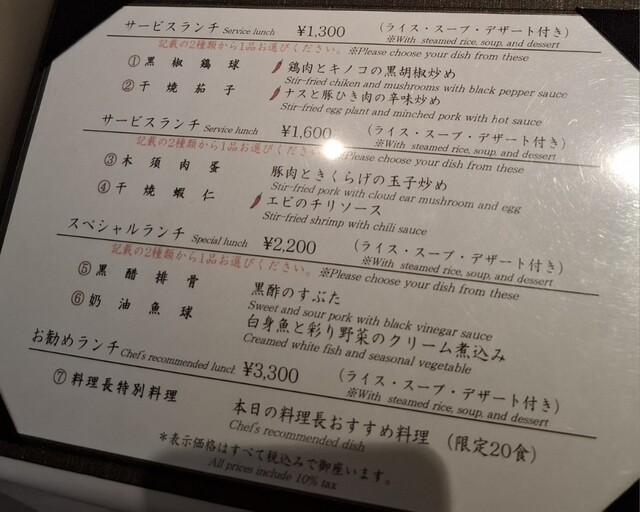 サービスランチ Service lunch ¥1,300 (ライス・スープ・デザート付き)
記載の2種類から1品お選びください。 ※Please choose your dish from these ※With steamed rice, soup, and dessert
①黒椒鶏球 鶏肉とキノコの黒胡椒炒め
Stir-fried chiken and mushrooms with black pepper sauce
②干焼茄子 ナスと豚ひき肉の辛味炒め
Stir-fried egg plant and minched pork with hot sauce
サービスランチ Service lunch ¥1,600 (ライス・スープ・デザート付き)
※With steamed rice, soup, and dessert
記載の2種類から1品お選びください。 ※Please choose your dish from these
③木須肉蛋 豚肉ときくらげの玉子炒め
Stir-fried pork with cloud ear mushroom and egg
④干焼蝦仁 エビのチリソース
Stir-fried shrimp with chili sauce
スペシャルランチ Special lunch ¥2,200 (ライス・スープ・デザート付き)
※With steamed rice, soup, and dessert
記載の2種類から1品お選びください。 ※Please choose your dish from these
⑤黒醋排骨 黒酢のすぶた
Sweet and sour pork with black vinegar sauce
⑥奶油魚球 白身魚と彩り野菜のクリーム煮込み
Creamed white fish and seasonal vegetable
お勧めランチ Chef's recommended lunch ¥3,300 (ライス・スープ・デザート付き)
※With steamed rice, soup, and dessert
⑦料理長特別料理 本日の料理長おすすめ料理 (限定20食)
Chef's recommended dish
*表示価格はすべて税込みで御座います。
All prices include 10% tax